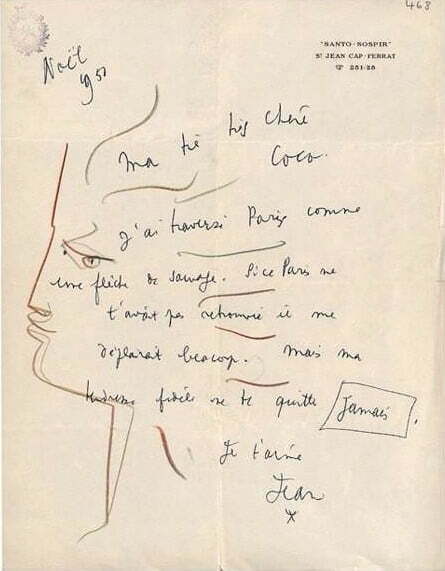 468
"SANTO-SOSPIR"
St JEAN CAP-FERRAT
☎ 251/28
Noël
1951
Ma très très chère
Coco.
J'ai traversé Paris comme
une flèche de sauvage. Si ce Paris ne
t'avait pas retrouvée il me
déplairait beaucoup. Mais ma
tendresse fidèle ne te quitte Jamais.
Je t'aime
Jean